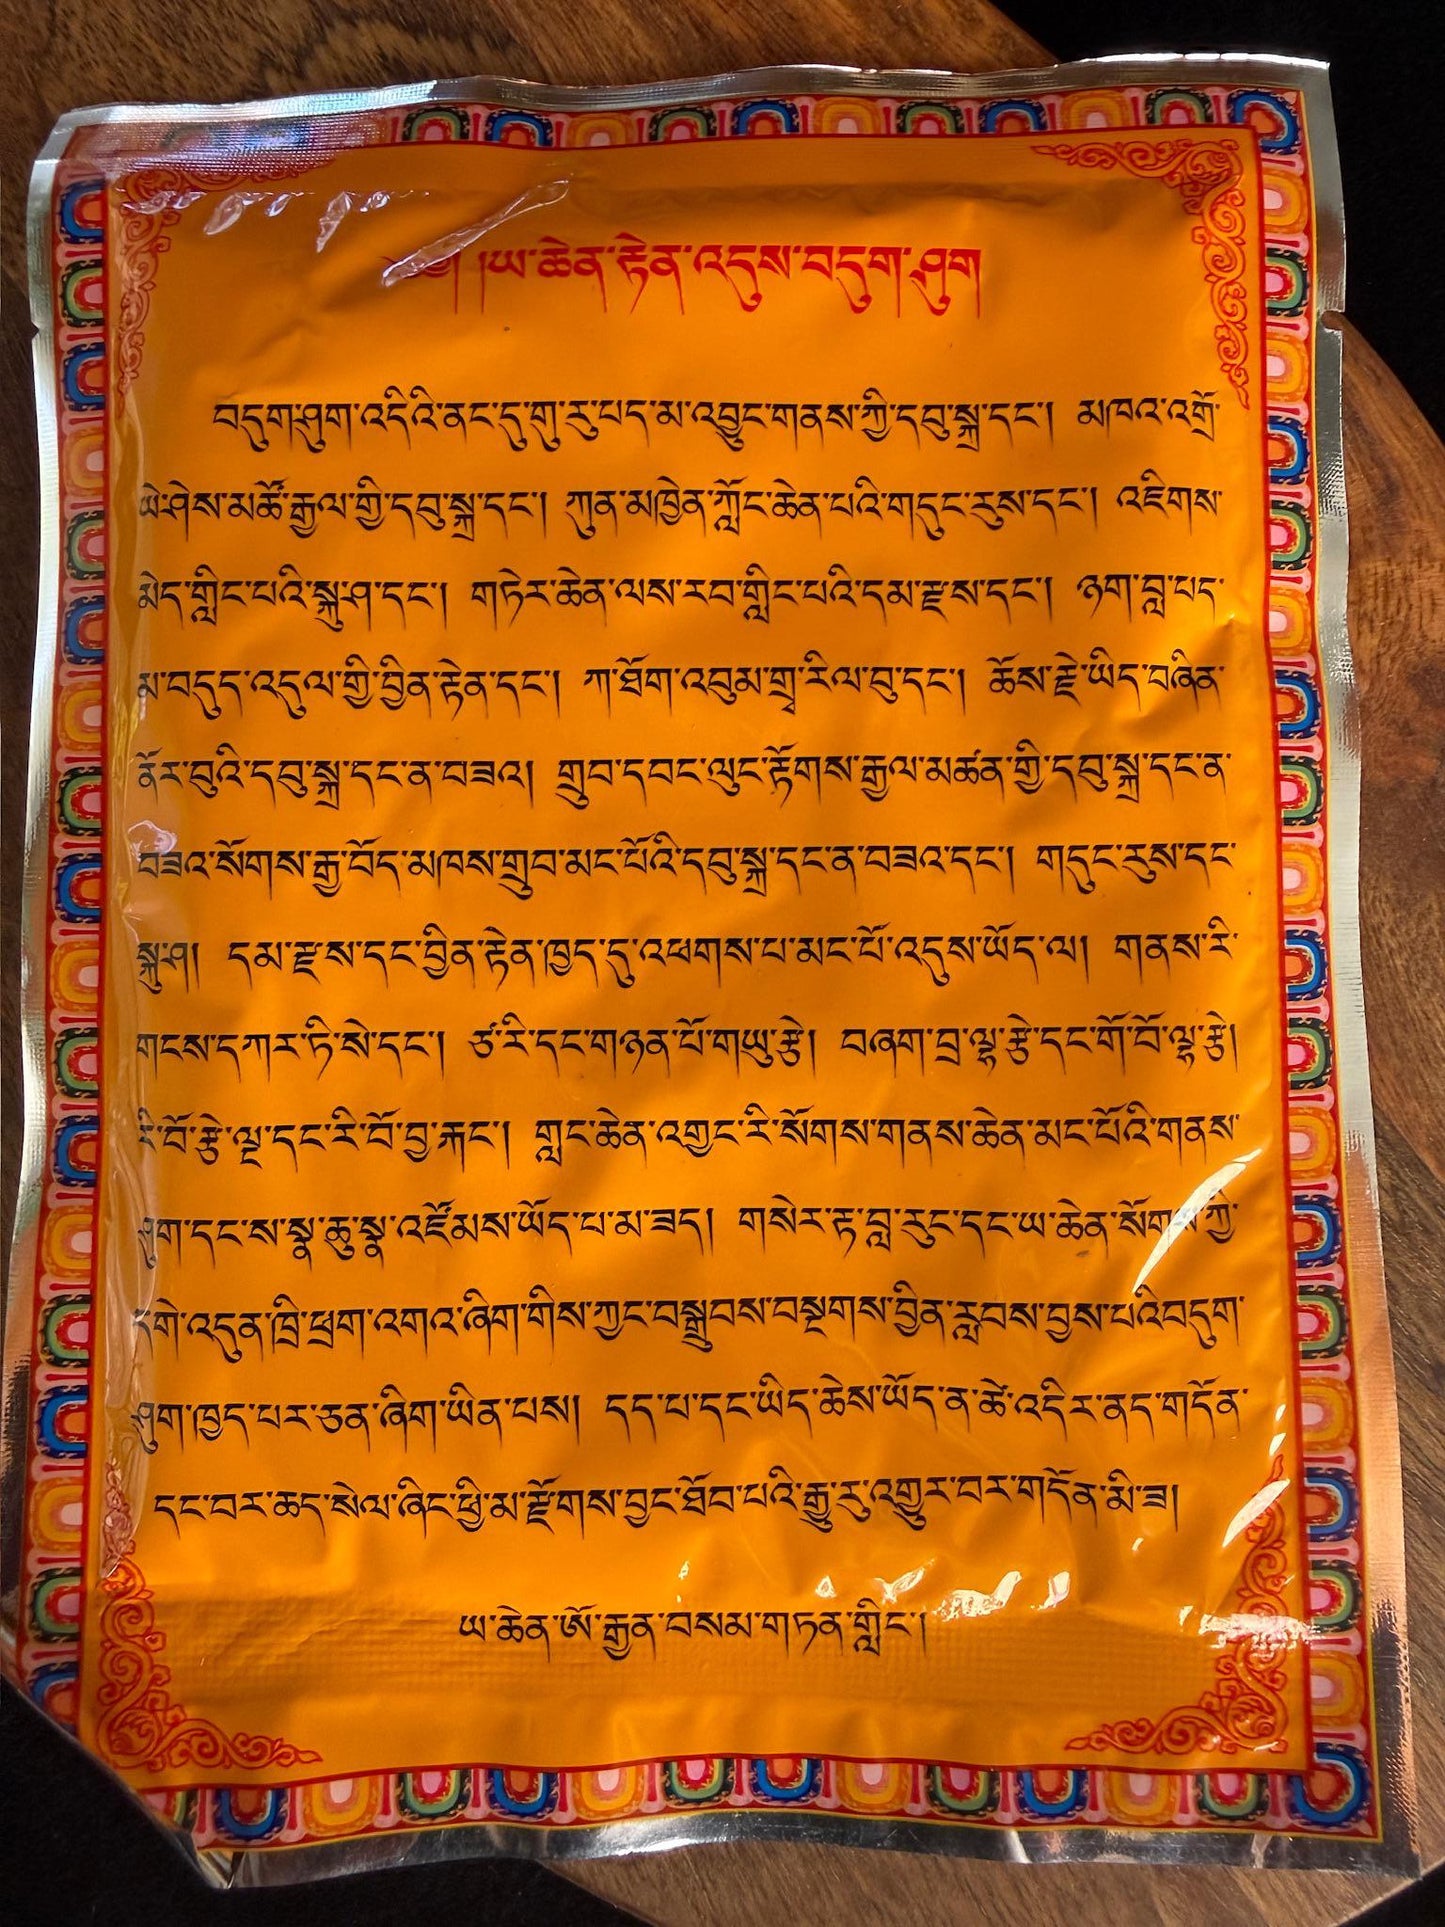 ༄༅། །ཡ་ཆེན་རྟེན་འདུས་བདུག་ཤུག
བདུག་ཤུག་འདིའི་ནང་དུ་གུ་རུ་པད་མ་འབྱུང་གནས་ཀྱི་དབུ་སྐྲ་དང་། མཁའ་འགྲོ་
ཡེ་ཤེས་མཚོ་རྒྱལ་གྱི་དབུ་སྐྲ་དང་། ཀུན་མཁྱེན་ཀློང་ཆེན་པའི་གདུང་རུས་དང་། འཇིགས་
མེད་གླིང་པའི་སྐུ་ཤ་དང་། གཏེར་ཆེན་ལས་རབ་གླིང་པའི་དམ་རྫས་དང་། ཉག་བླ་པད་
མ་བདུད་འདུལ་གྱི་བྱིན་རྟེན་དང་། ཀ་ཐོག་འབུམ་གྲྭ་རིལ་བུ་དང་། ཆོས་རྗེ་ཡིད་བཞིན་
ནོར་བུའི་དབུ་སྐྲ་དང་ན་བཟའ། གྲུབ་དབང་ལུང་རྟོགས་རྒྱལ་མཚན་གྱི་དབུ་སྐྲ་དང་ན་
བཟའ་སོགས་རྒྱ་བོད་མཁས་གྲུབ་མང་པོའི་དབུ་སྐྲ་དང་ན་བཟའ་དང་། གདུང་རུས་དང་
སྐུ་ཤ། དམ་རྫས་དང་བྱིན་རྟེན་ཁྱད་དུ་འཕགས་པ་མང་པོ་འདུས་ཡོད་ལ། གནས་རི་
གངས་དཀར་ཏི་སེ་དང་། ཙཱ་རི་དང་གཉན་པོ་གཡུ་རྩེ། བཞག་བྲ་ལྷ་རྩེ་དང་གོ་བོ་ལྷ་རྩེ།
རི་བོ་རྩེ་ལྔ་དང་རི་བོ་བྱ་རྐང་། གླང་ཆེན་འགྱང་རི་སོགས་གནས་ཆེན་མང་པོའི་གནས་
ཤུག་དང་ས་སྣ་ཆུ་སྣ་འཛོམས་ཡོད་པ་མ་ཟད། གསེར་རྟ་བླ་རུང་དང་ཡ་ཆེན་སོགས་ཀྱི་
དགེ་འདུན་ཁྲི་ཕྲག་འགའ་ཞིག་གིས་ཀྱང་བསྒྲུབས་བསྔགས་བྱིན་རླབས་བྱས་པའི་བདུག་
ཤུག་ཁྱད་པར་ཅན་ཞིག་ཡིན་པས། དད་པ་དང་ཡིད་ཆེས་ཡོད་ན་ཚེ་འདིར་ནད་གདོན་
དང་བར་ཆད་སེལ་ཞིང་ཕྱི་མ་རྫོགས་བྱང་ཐོབ་པའི་རྒྱུ་རུ་འགྱུར་བར་གདོན་མི་ཟ།
ཡ་ཆེན་ཨོ་རྒྱན་བསམ་གཏན་གླིང་།